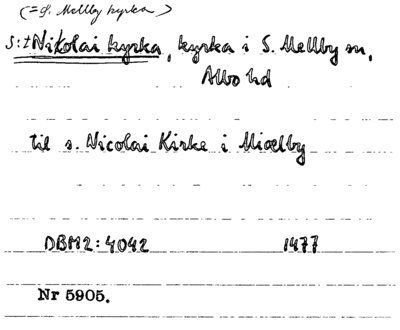 (= S. Mellby kyrka)
S:t Nikolai kyrka, kyrka i S. Mellby sn,
Albo hd
til s. Nicolai Kirke i Miælby
DBM2:4042 1477
Nr 5905.